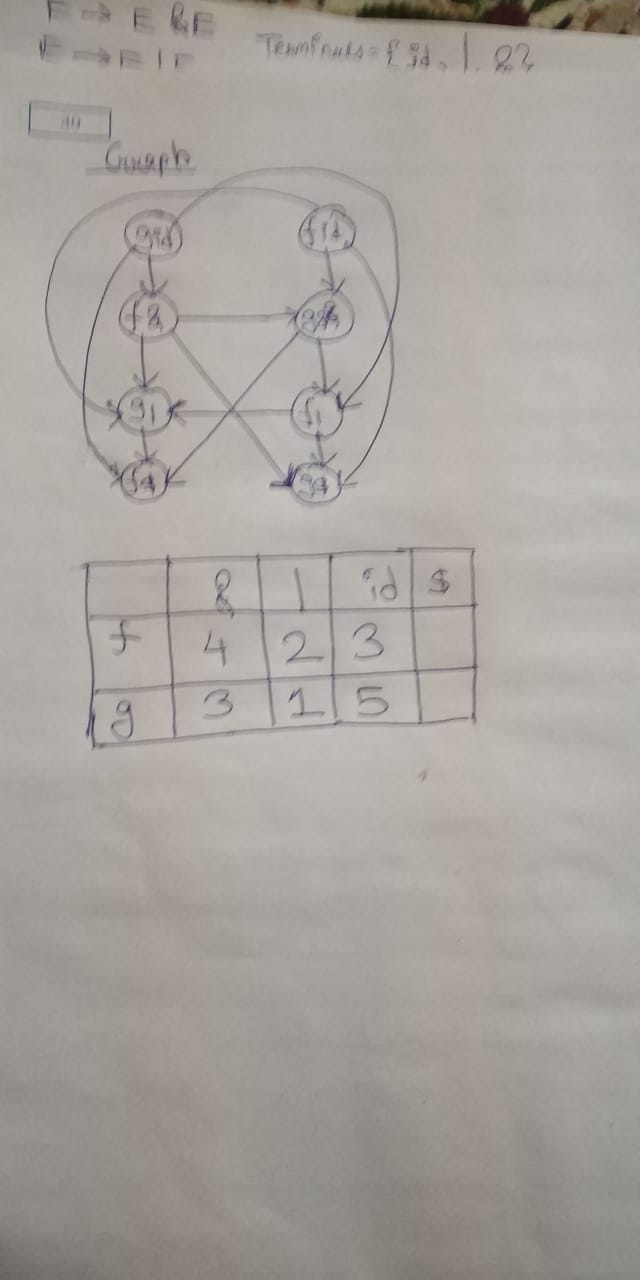 E → E & E
E → E | E
Terminals = { id, |, &}
Graph
gid fid
f& g&
g| f|
f$ g$
& | id $
f 4 2 3
g 3 1 5